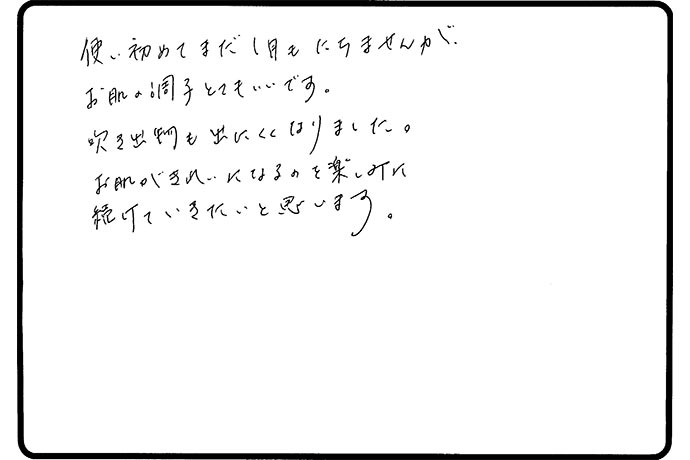 使い初めてまだ1月もたちませんが、
お肌の調子とてもいいです。
吹き出物も出にくくなりました。
お肌がきれいになるのを楽しみに
続けていきたいと思います。